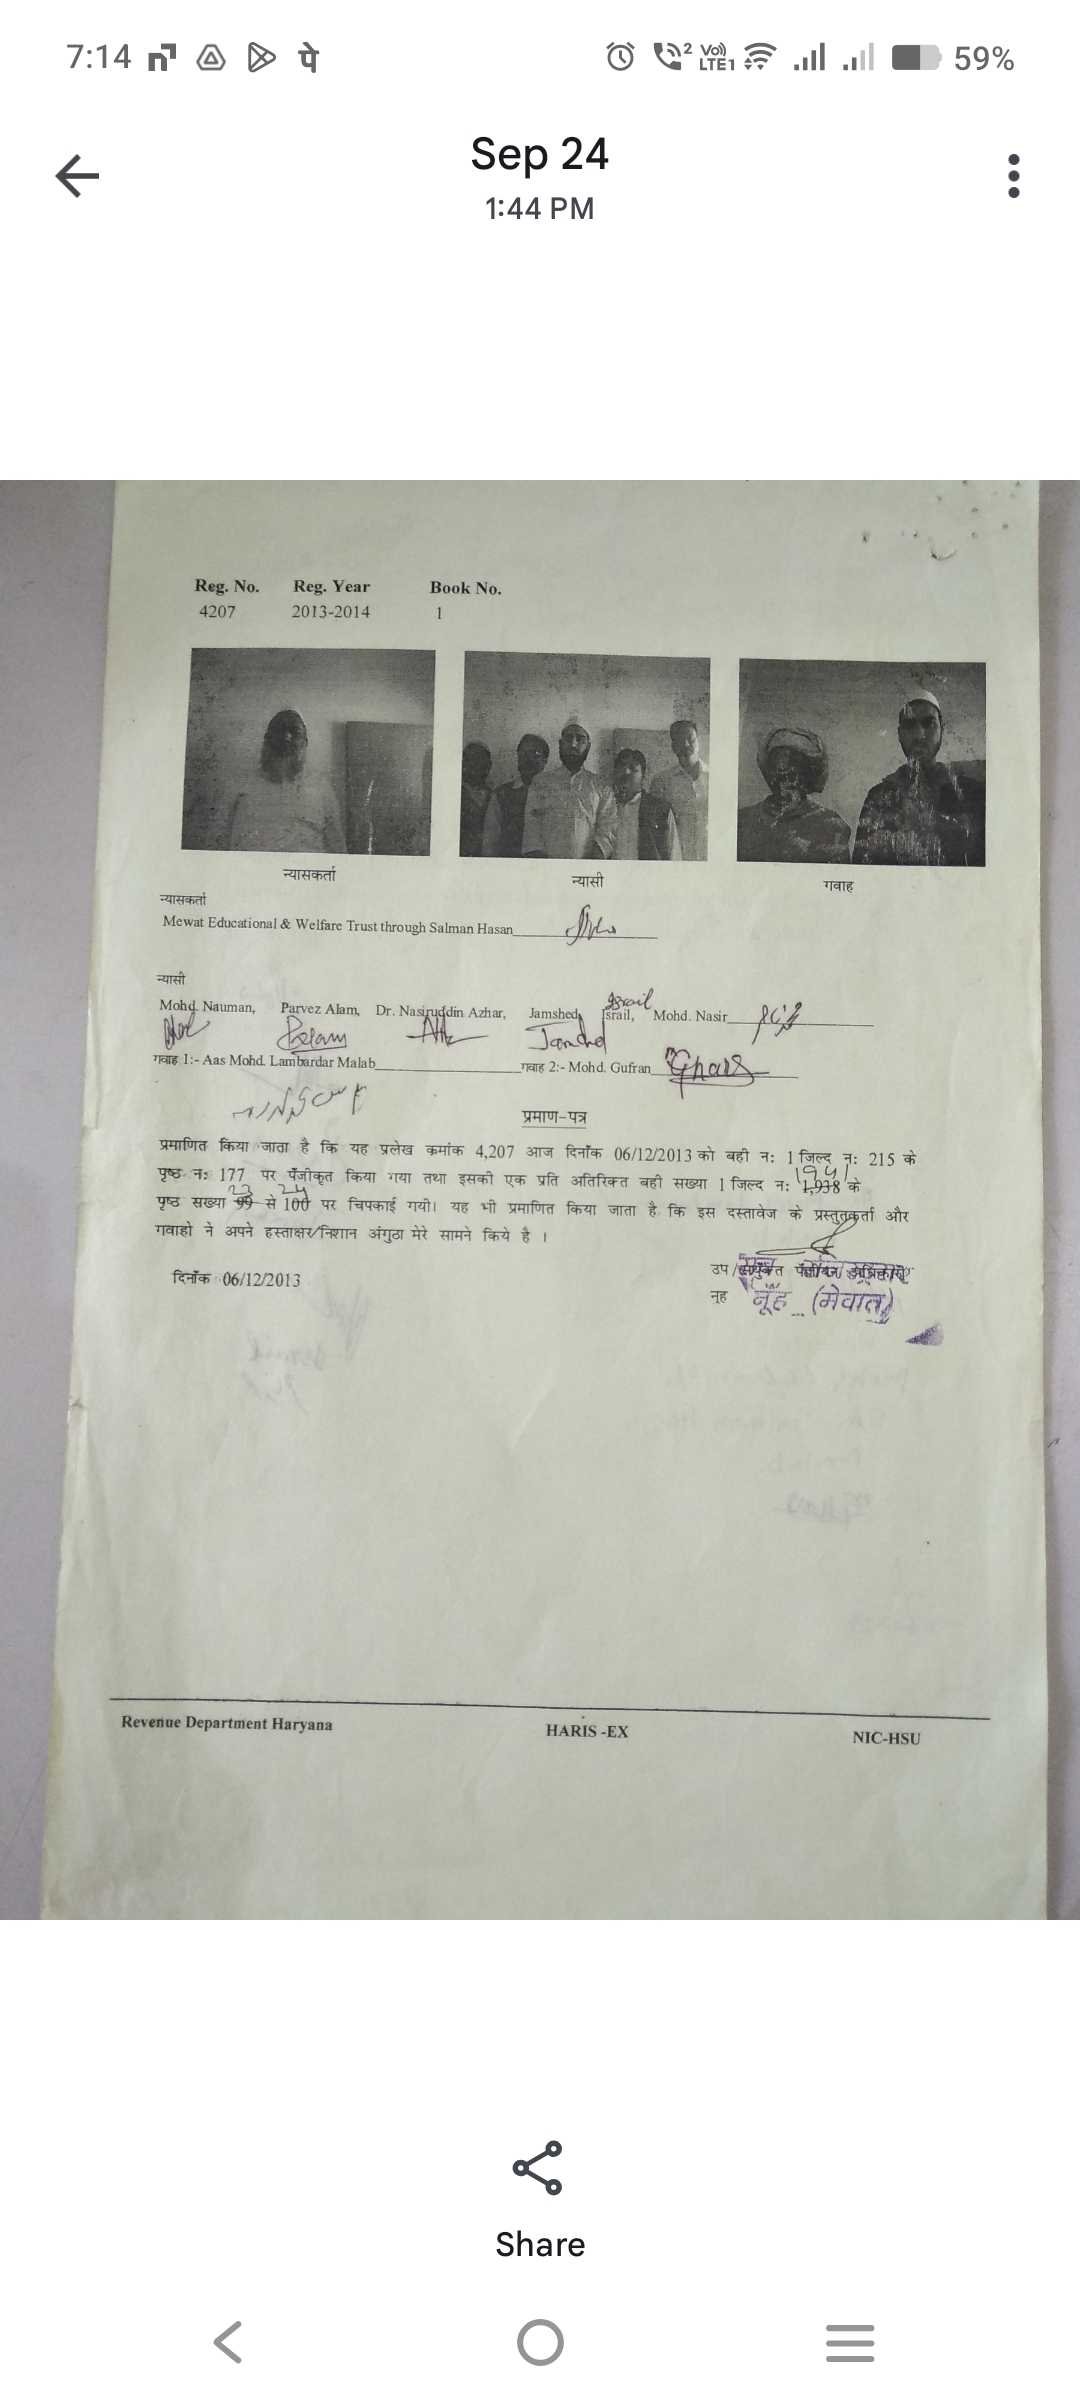 7:14 पे 2 Vo)) LTE1 59%
Sep 24
1:44 PM
Reg. No. Reg. Year Book No.
4207 2013-2014 1
न्यासकर्ता न्यासी गवाह
न्यासकर्ता
Mewat Educational & Welfare Trust through Salman Hasan
न्यासी
Israil
Mohd. Nauman, Parvez Alam, Dr. Nasiruddin Azhar, Jamshed, Israil, Mohd. Nasir
Jamshed
गवाह 1:- Aas Mohd. Lambardar Malab गवाह 2:- Mohd. Gufran
प्रमाण-पत्र
प्रमाणित किया जाता है कि यह प्रलेख क्रमांक 4,207 आज दिनाँक 06/12/2013 को बही न: 1 जिल्द न: 215 के
पृष्ठ न: 177 पर पँजीकृत किया गया तथा इसकी एक प्रति अतिरिक्त बही सख्या 1 जिल्द न: 1,938 1941 के
पृष्ठ सख्या 99 23 से 100 24 पर चिपकाई गयी। यह भी प्रमाणित किया जाता है कि इस दस्तावेज के प्रस्तुतकर्ता और
गवाहो ने अपने हस्ताक्षर/निशान अंगुठा मेरे सामने किये है ।
दिनाँक 06/12/2013
उप/सयुँक्त पँजीयन अधिकारी
नूह नूँह (मेवात)
Revenue Department Haryana HARIS -EX NIC-HSU
Share